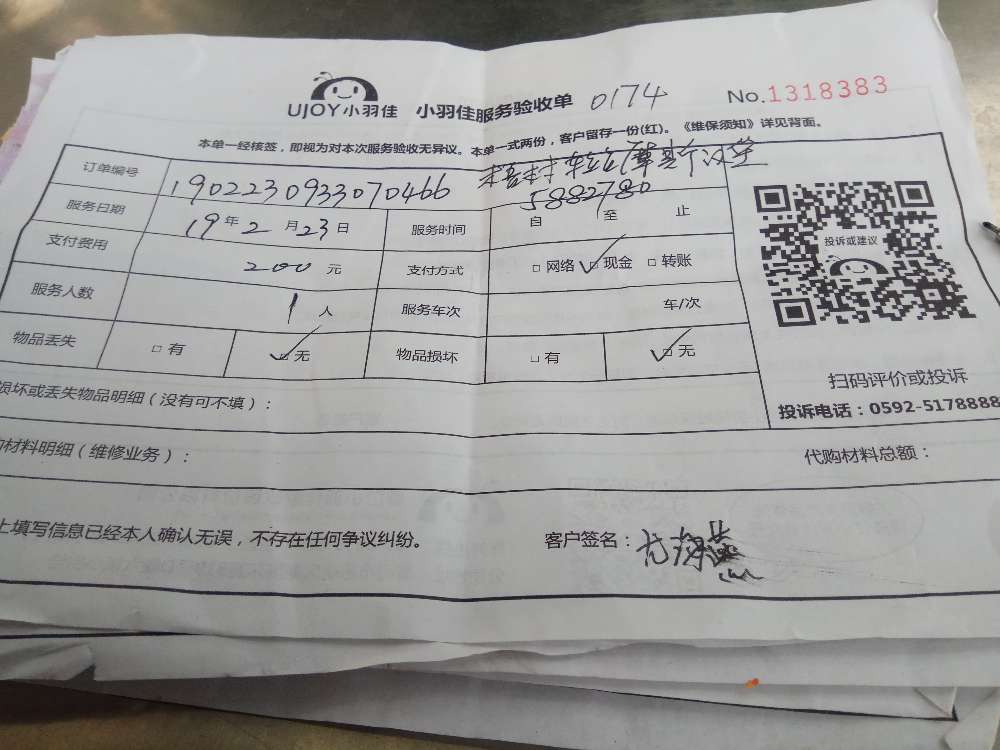 UJOY小羽佳 小羽佳服务验收单 0174 No.1318383
本单一经核签，即视为对本次服务验收无异议。本单一式两份，客户留存一份(红)。《维保须知》详见背面。
订单编号 1902230933070466 梧村车站
5882780
服务日期 19年2月23日 服务时间 自 至 止
支付费用 200元 支付方式 □网络 ☑现金 □转账
服务人数 1人 服务车次 车/次
物品丢失 □有 ☑无 物品损坏 □有 ☑无
投诉或建议
扫码评价或投诉
投诉电话：0592-5178888
损坏或丢失物品明细（没有可不填）：
材料明细（维修业务）： 代购材料总额：
上填写信息已经本人确认无误，不存在任何争议纠纷。 客户签名：